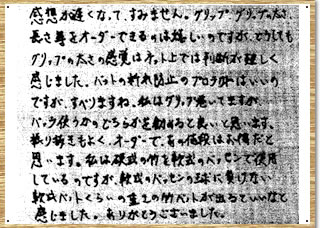 感想が遅くなって、すみません。グリップ・グリップの太さ、
長さ等をオーダーできるのは嬉しいのですが、どうしても
グリップの太さの感覚はネット上では判断が難しく
感じました。バットの折れ防止のプロテクトはいいの
ですが、すべりますね。私はグリップ巻いてますが、
バック使うかのどちらかを勧めると良いと思います。
振り抜きもよく、オーダーで、あの値段はお得だと
思います。私は硬式の竹を軟式のバッセンで使用
しているのですが、軟式のバッセンの球に負けない
軟式バットくらいの重さの竹バットが出るといいなと
感じました。ありがとうございました。